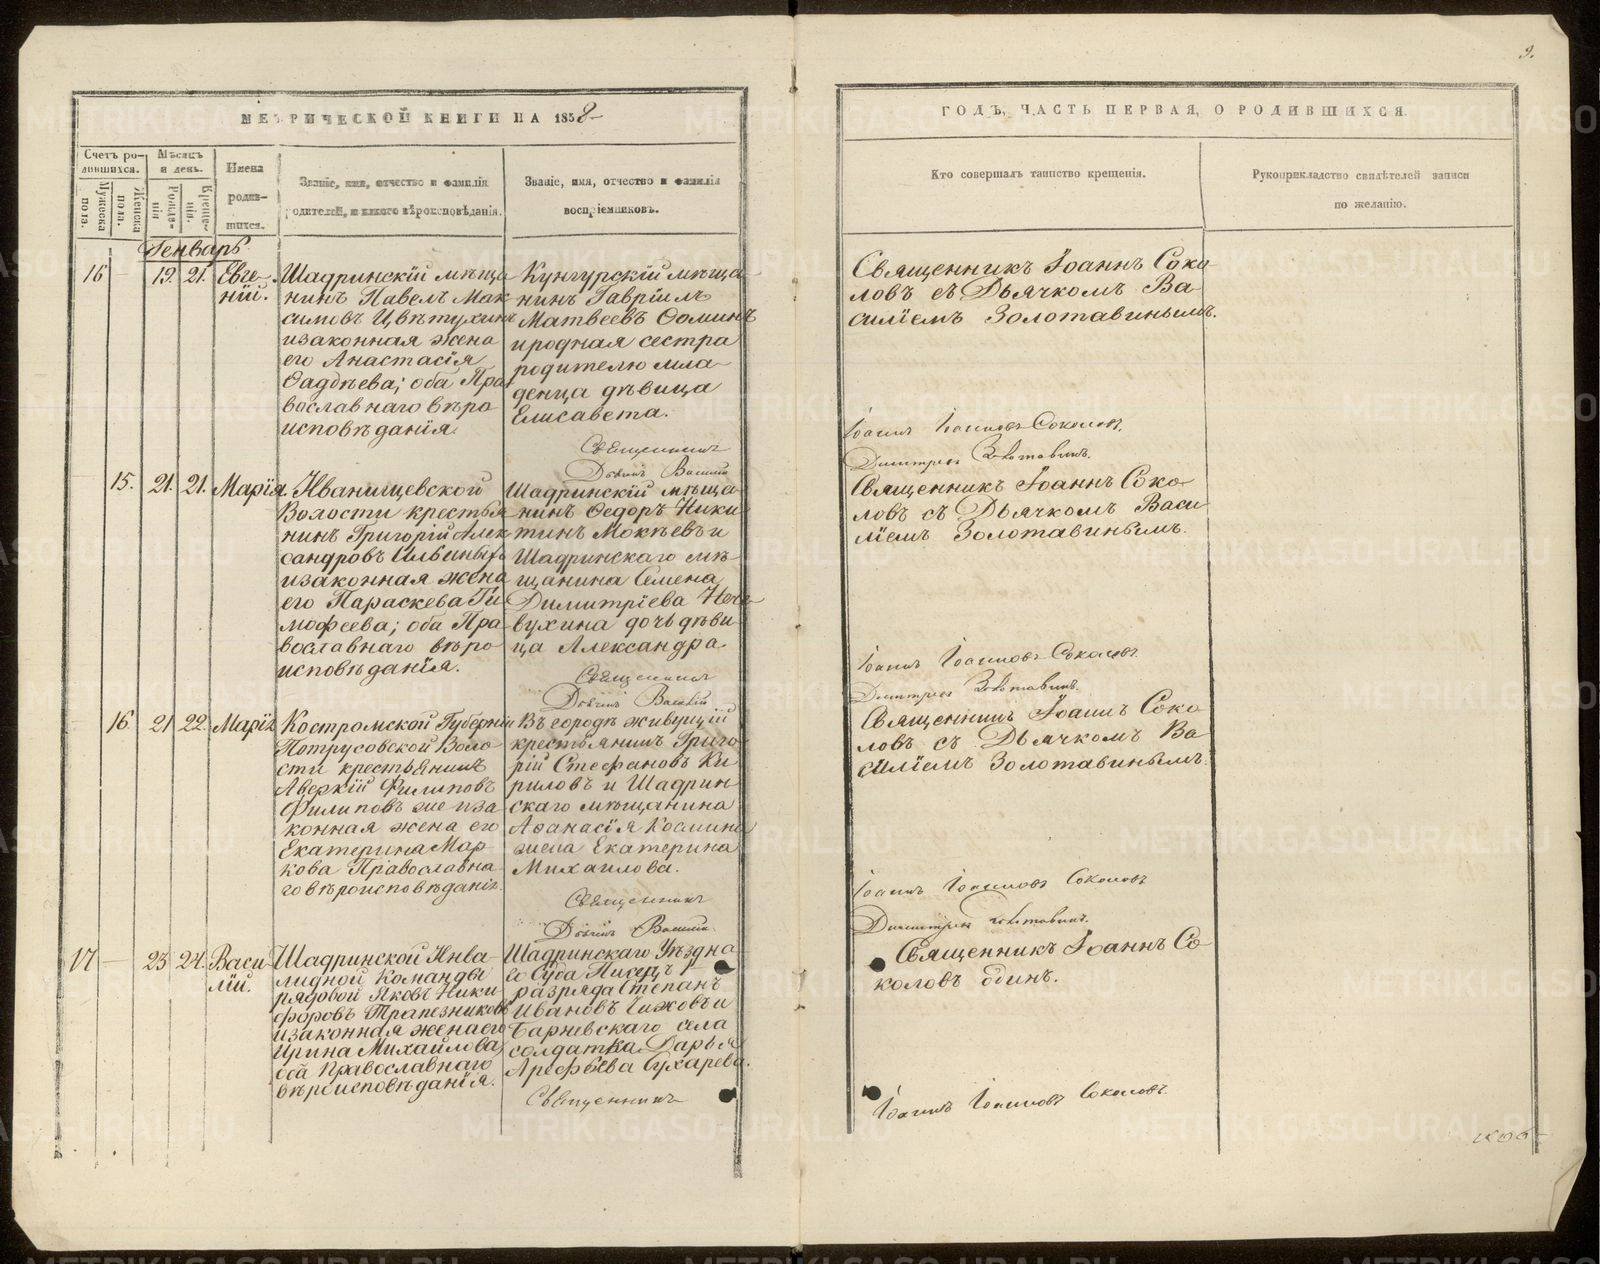 9.
МЕТРИЧЕСКОЙ КНИГИ НА 1858
ГОДЪ, ЧАСТЬ ПЕРВАЯ, О РОДИВШИХСЯ.
Счетъ ро-
дившихся.
Мужеска
пола.
Женска
пола.
Мѣсяцъ
и день.
Рожде-
нія
Креще-
нія.
Имена
родив-
шихся.
Званіе, имя, отчество и фамилія
родителей, и какого вѣроисповѣданія.
Званіе, имя, отчество и фамилія
воспріемниковъ.
Кто совершалъ таинство крещенія.
Рукоприкладство свидѣтелей записи
по желанію.
Генварь
16 — 19. 21. Евге-
ній.
Шадринскій мѣща-
нинъ Павелъ Мак
симовъ Цвѣтухинъ
изаконная жена
его Анастасія
Ѳадѣева; оба Пра
вославнаго вѣро
исповѣданія.
Кунгурскій мѣща-
нинъ Гавріилъ
Матвеевъ Ѳоминъ
и родная сестра
родителю мла-
денца дѣвица
Елисавета.
Священникъ
Дьячекъ Василій
Священникъ Іоаннъ Соко
ловъ съ Дьячкомъ Ва-
силіемъ Золотавинымъ.
Іоаннъ Іоанновъ Соколовъ.
Дмитріевъ Золотавинъ.
15. 21. 21. Марія.
Иванищевской
Волости крестья
нинъ Григорій Алек
сандровъ Сильиныхъ
изаконная жена
его Параскева Ти
мофеева; оба Пра-
вославнаго вѣро
исповѣданія.
Шадринскій мѣща-
нинъ Ѳедоръ Ники
тинъ Мокѣевъ и
Шадринскаго мѣ-
щанина Семена
Димитріева Нече-
вухина дочь дѣви
ца Александра.
Священникъ
Дьячекъ Василій
Священникъ Іоаннъ Соко
ловъ съ Дьячкомъ Васи
ліемъ Золотавинымъ.
Іоаннъ Іоанновъ Соколовъ
Дмитріевъ Золотавинъ.
16 21 22. Марія
Костромской Губерніи
Потрусовской Воло
сти крестьянинъ
Аверкій Филиповъ
Филиповъ же иза
конная жена его
Екатерина Мар-
кова Православна-
го вѣроисповѣданія.
Въ городѣ живущій
крестьянинъ Григо
рій Стефановъ Ки
риловъ и Шадрин
скаго мѣщанина
Аѳанасія Космина
жена Екатерина
Михаилова.
Священникъ
Дьячекъ Василій.
Священникъ Іоаннъ Соко
ловъ съ Дьячкомъ Ва
силіемъ Золотавинымъ.
Іоаннъ Іоанновъ Соколовъ
Дмитріевъ Золотавинъ.
17 — 23 24. Васи-
лій.
Шадринской Инва-
лидной Команды
рядовой Яковъ Ники-
форовъ Трапезниковъ
изаконная жена его
Ирина Михайлова;
оба Православнаго
вѣроисповѣданія.
Шадринскаго Уѣздна
го Суда Писецъ 1
разряда Степанъ
Ивановъ Чижовъ и
Барневскаго села
солдатка Дарья
Арефьева Сухарева.
Священникъ
Священникъ Іоаннъ Со
коловъ одинъ.
Іоаннъ Іоанновъ Соколовъ.
METRIKI.GASO-URAL.RU